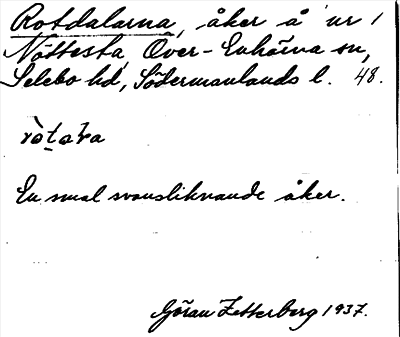 Rotdalarna, åker å nr 1
Nöttesta, Över-Enhörna sn,
Selebo hd, Södermanlands l. 48.
En smal svansliknande åker.
Göran Zetterberg 1937.